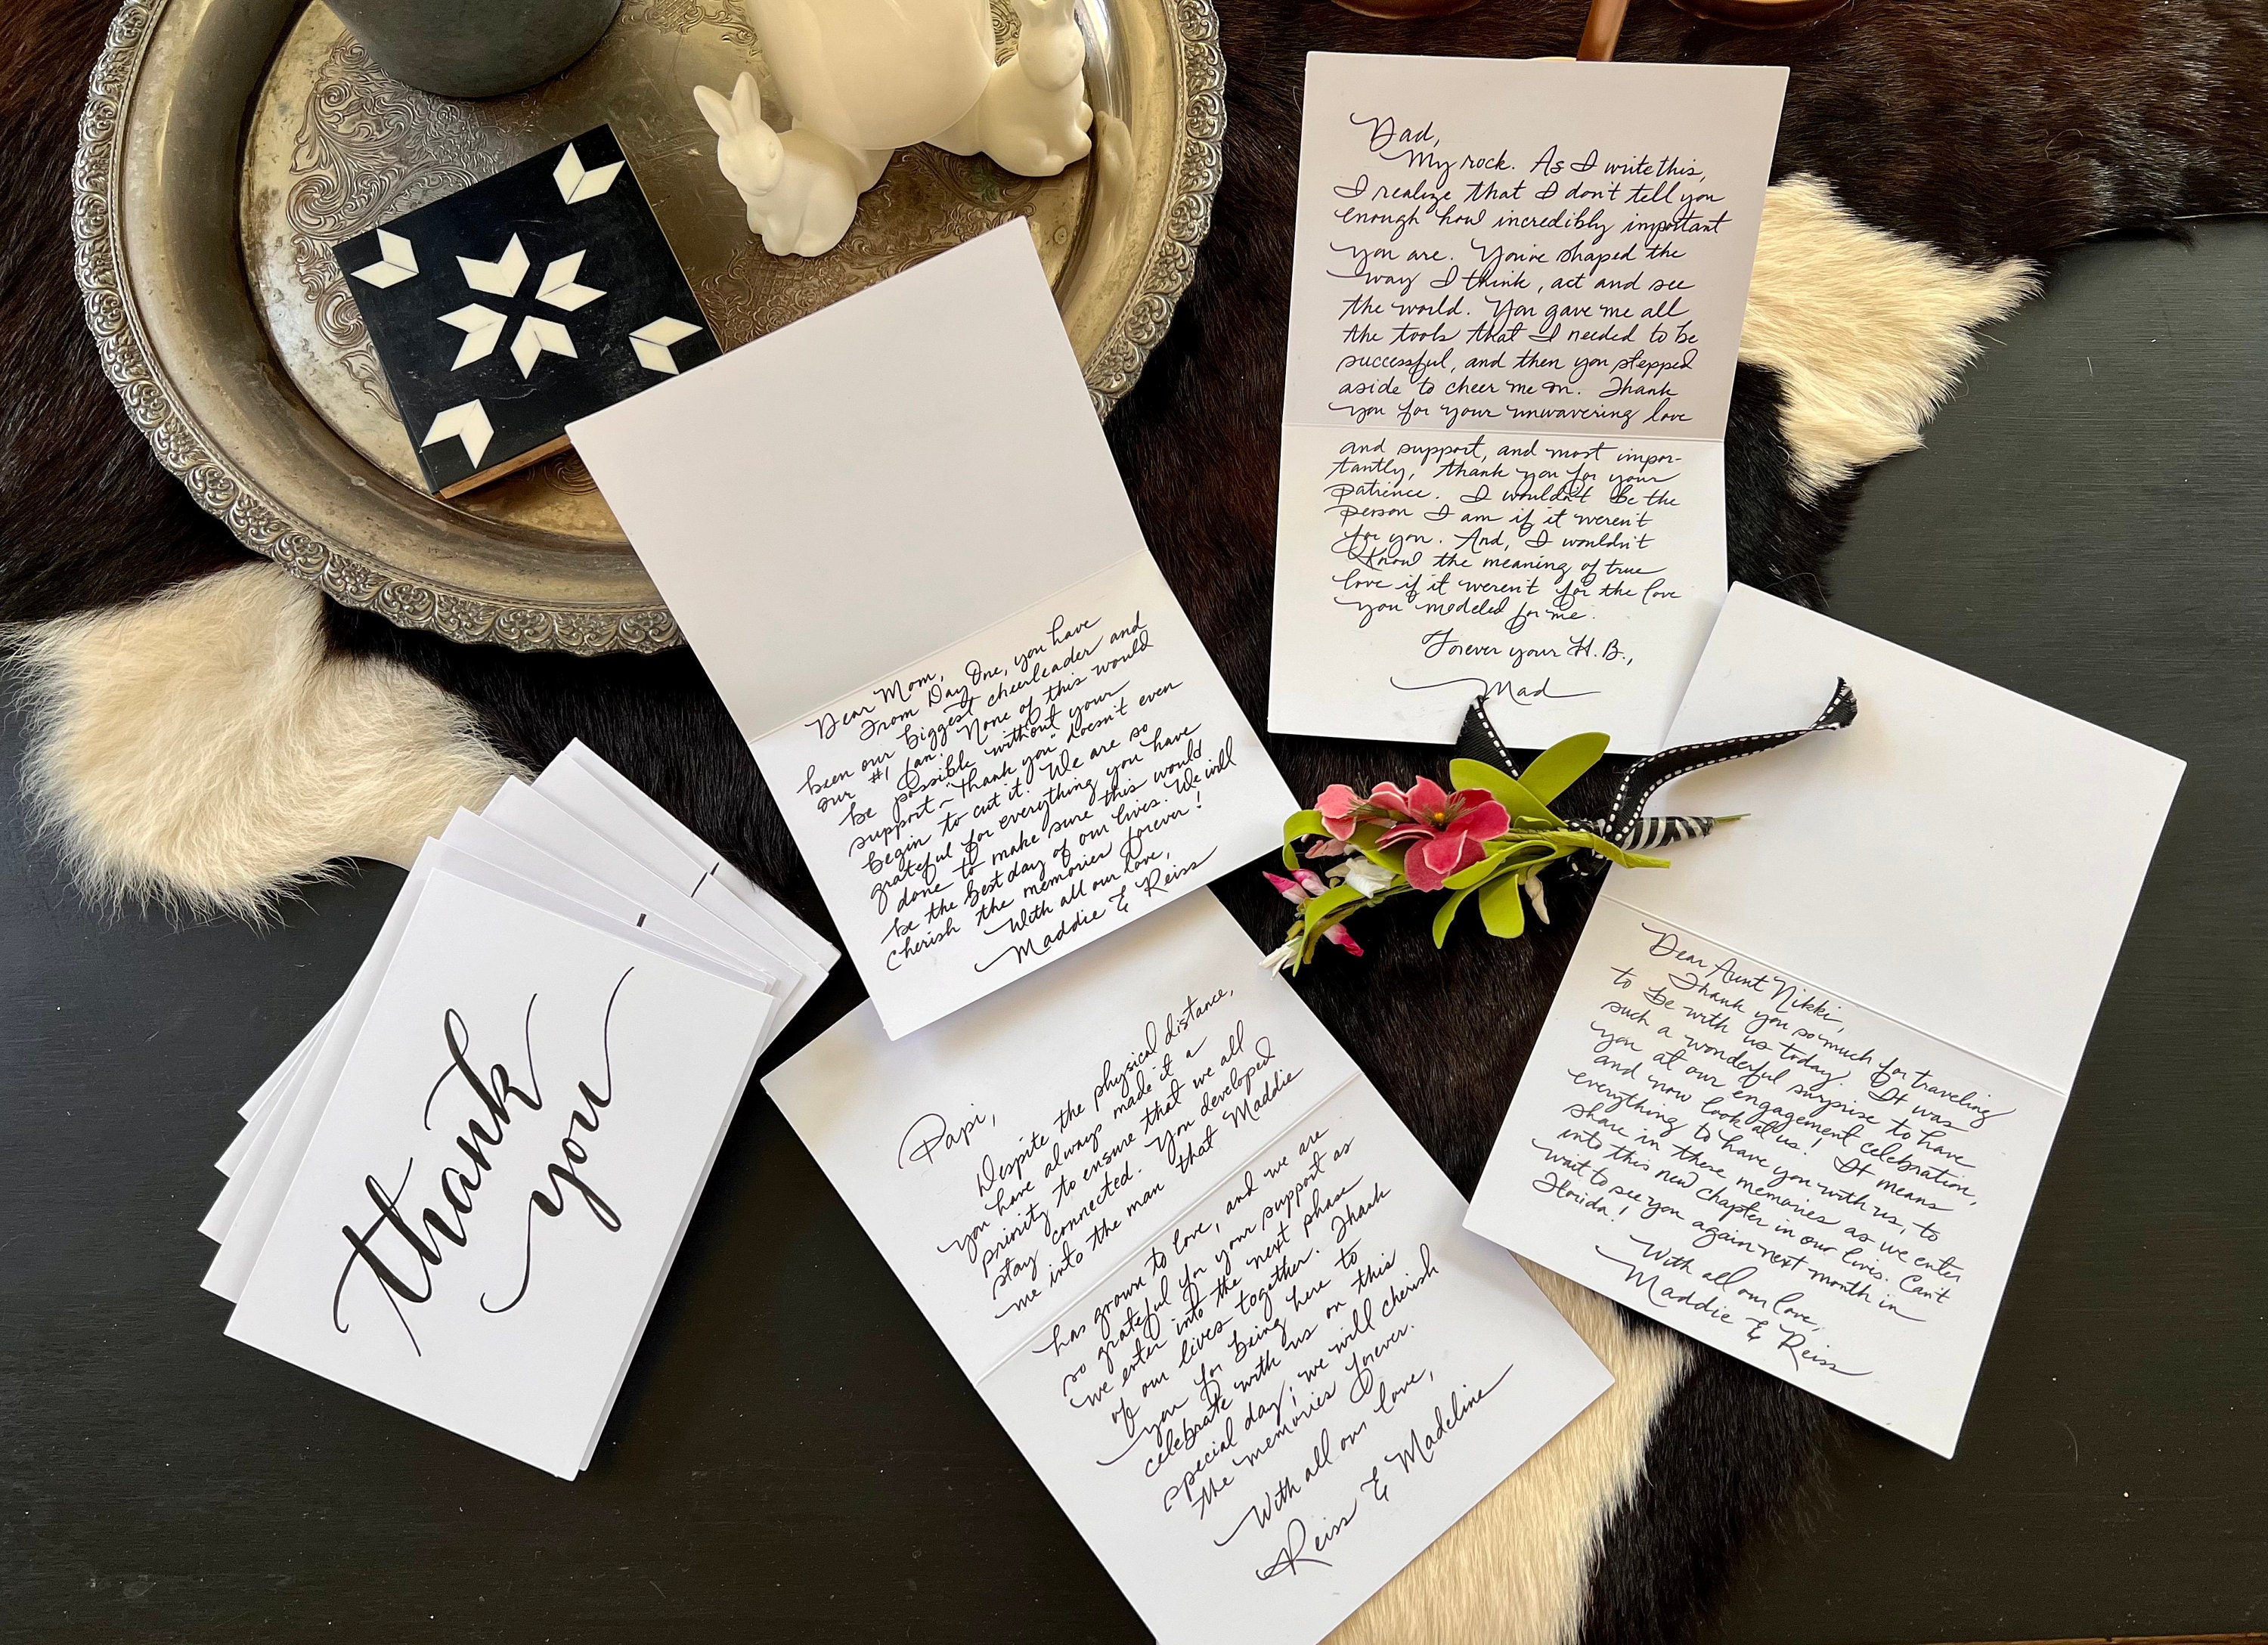 Dad,
My rock. As I write this,
I realize that I don't tell you
enough how incredibly important
you are. You've shaped the
way I think, act and see
the world. You gave me all
the tools that I needed to be
successful, and then you stepped
aside to cheer me on. Thank
you for your unwavering love
and support, and most impor-
tantly, thank you for your
patience. I wouldn't be the
person I am if it weren't
for you. And, I wouldn't
know the meaning of true
love if it weren't for the love
you modeled for me.
Forever your H.B.,
Mad
Dear Mom,
From Day One, you have
been our biggest cheerleader and
our #1 fan! None of this would
be possible without your
support - "thank you" doesn't even
begin to cut it! We are so
grateful for everything you have
done to make sure this would
be the best day of our lives. We will
cherish the memories forever!
With all our love,
Maddie & Reiss
Dear Aunt Nikki,
Thank you so much for traveling
to be with us today. It was
such a wonderful surprise to have
you at our engagement celebration,
and now look at us! It means
everything to have you with us, to
share in these memories as we enter
into this new chapter in our lives. Can't
wait to see you again next month in
Florida!
With all our love,
Maddie & Reiss
Papi,
Despite the physical distance,
you have always made it a
priority to ensure that we all
stay connected. You developed
me into the man that Maddie
has grown to love, and we are
so grateful for your support as
we enter into the next phase
of our lives together. Thank
you for being here to
celebrate with us on this
special day; we will cherish
the memories forever.
With all our love,
Reiss & Madeline
thank
you